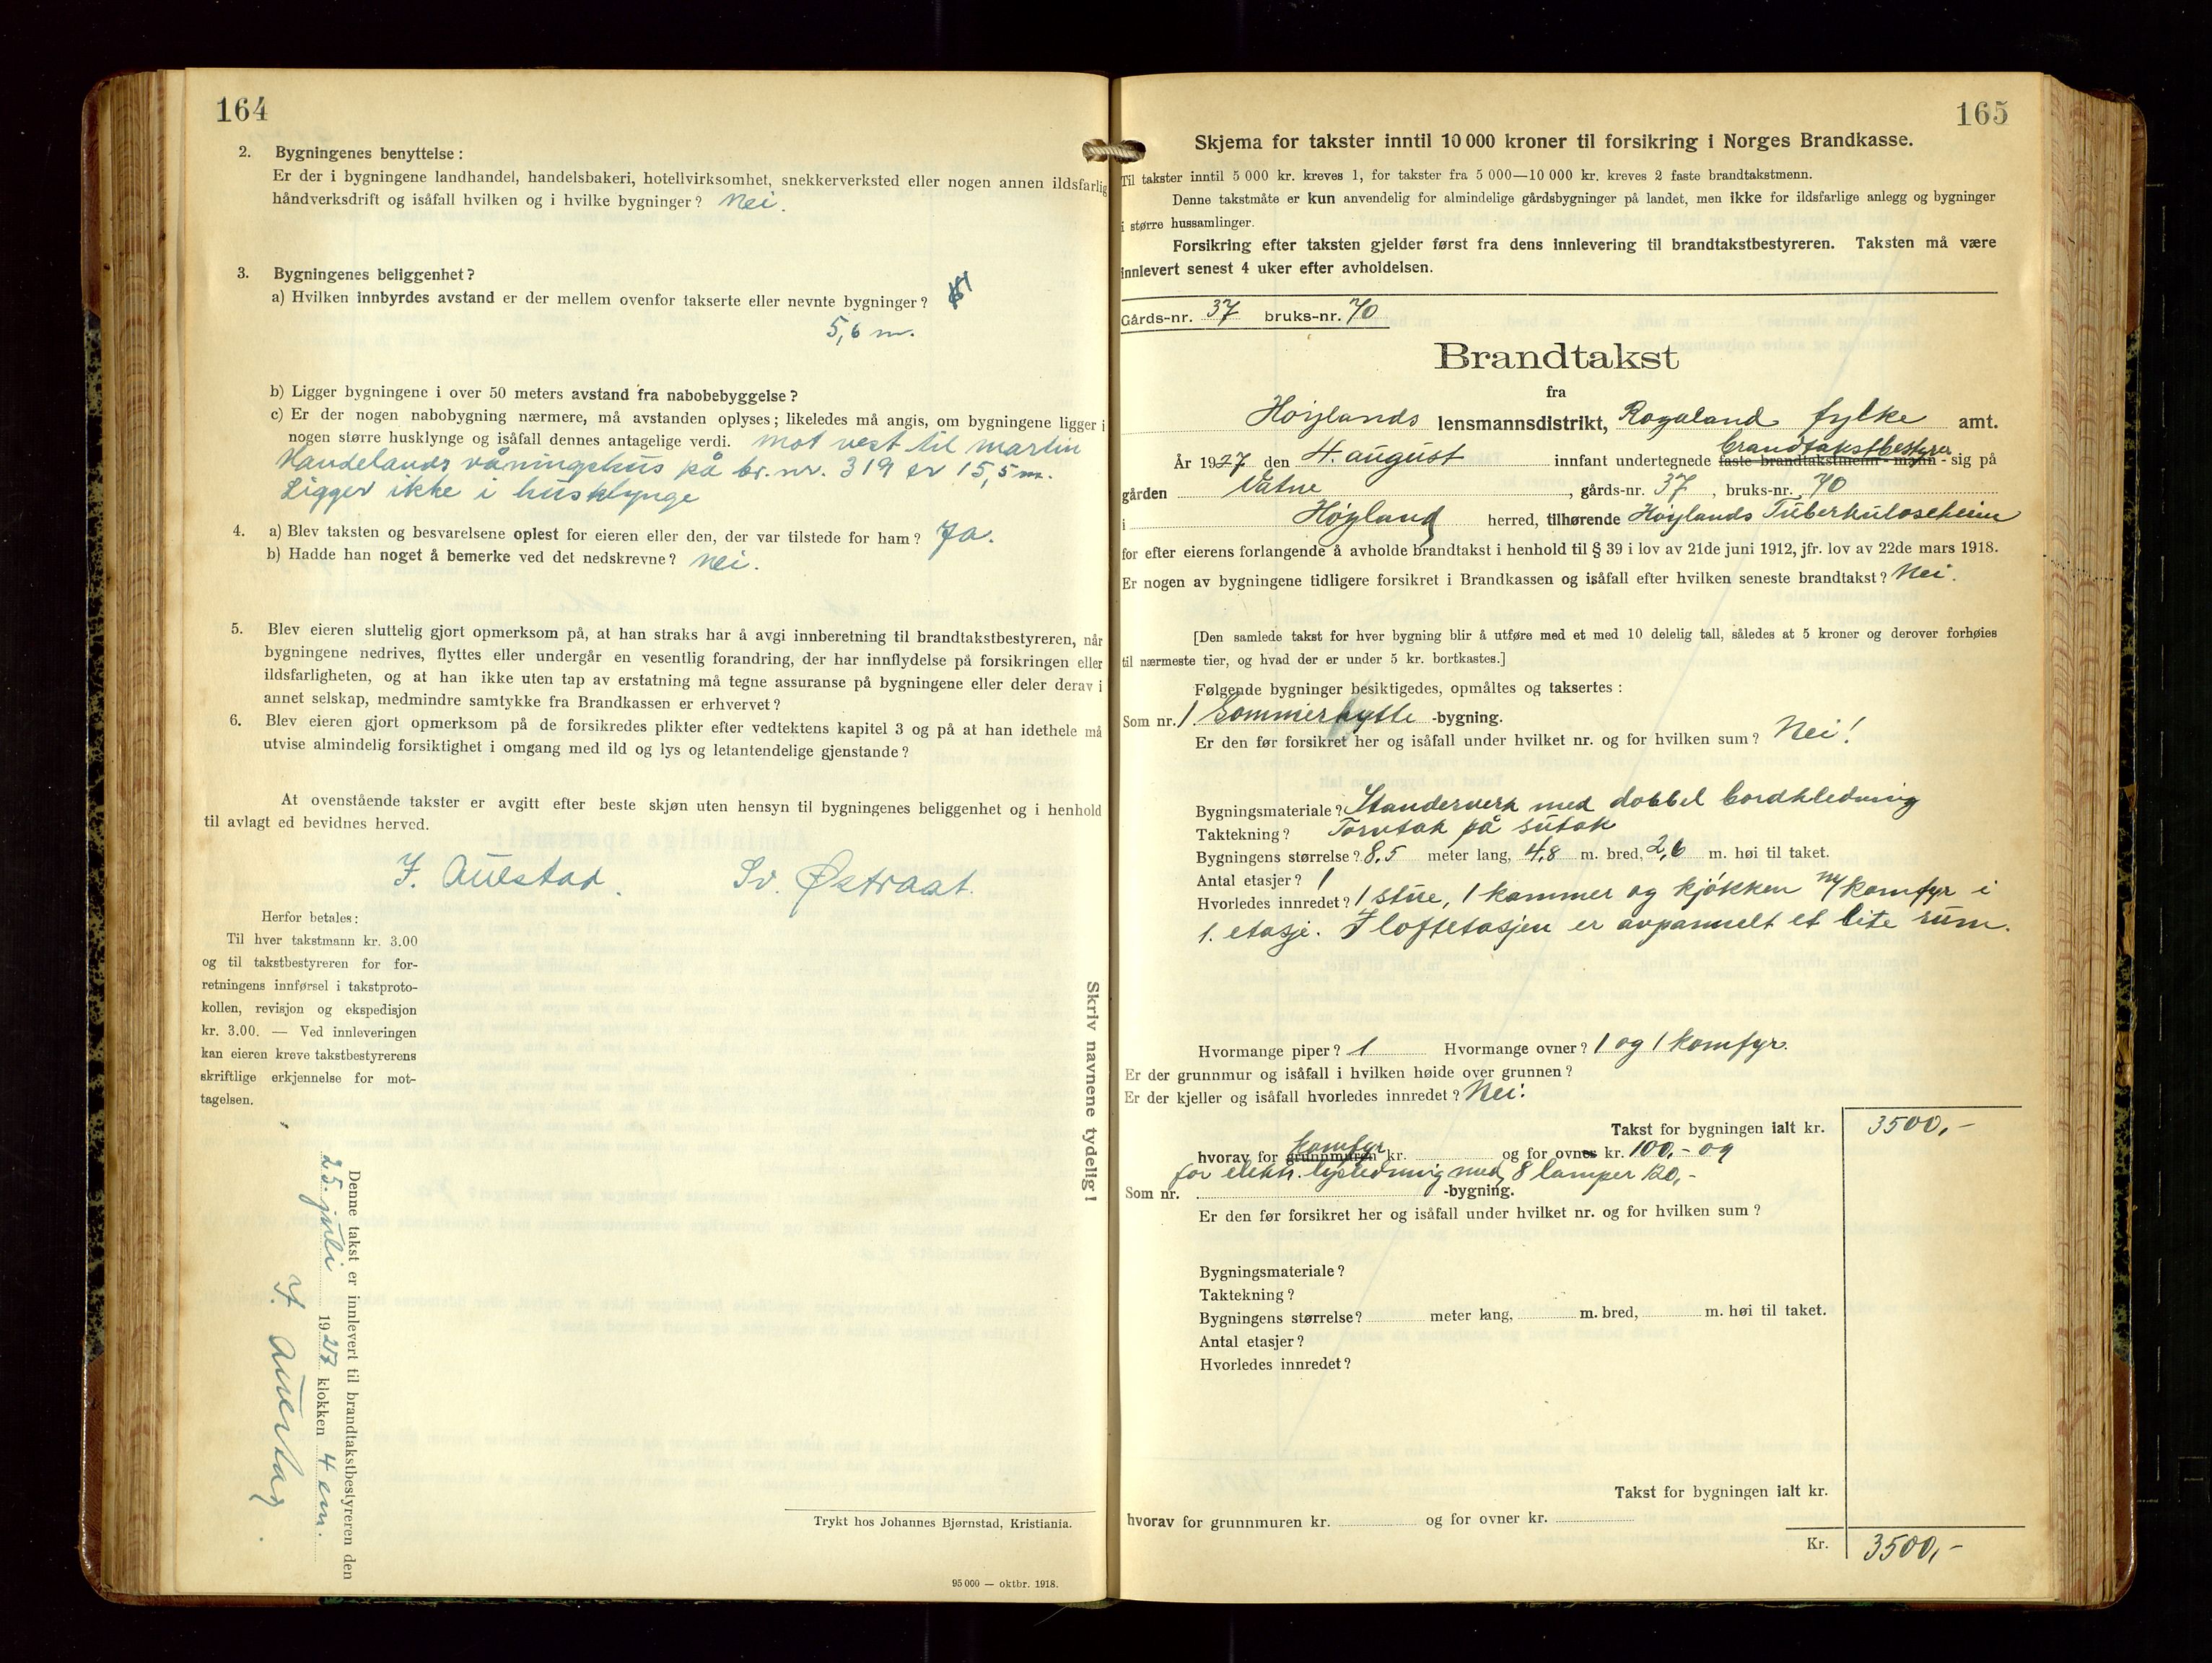 164
2. Bygningenes benyttelse:
Er der i bygningene landhandel, handelsbakeri, hotellvirksomhet, snekkerverksted eller nogen annen ildsfarlig
håndverksdrift og isåfall hvilken og i hvilke bygninger? Nei.
3. Bygningenes beliggenhet?
a) Hvilken innbyrdes avstand er der mellem ovenfor takserte eller nevnte bygninger?
5,6 m.
b) Ligger bygningene i over 50 meters avstand fra nabobebyggelse?
c) Er der nogen nabobygning nærmere, må avstanden oplyses; likeledes må angis, om bygningene ligger i
nogen større husklynge og isåfall dennes antagelige verdi. mot vest til martin
Haudelands våningshus på br. nr. 319 er 15,5 m.
Ligger ikke i husklynge
4. a) Blev taksten og besvarelsene oplest for eieren eller den, der var tilstede for ham? Ja.
b) Hadde han noget å bemerke ved det nedskrevne? Nei.
5. Blev eieren sluttelig gjort opmerksom på, at han straks har å avgi innberetning til brandtakstbestyreren, når
bygningene nedrives, flyttes eller undergår en vesentlig forandring, der har innflydelse på forsikringen eller
ildsfarligheten, og at han ikke uten tap av erstatning må tegne assuranse på bygningene eller deler derav i
annet selskap, medmindre samtykke fra Brandkassen er erhvervet?
6. Blev eieren gjort opmerksom på de forsikredes plikter efter vedtektens kapitel 3 og på at han idethele må
utvise almindelig forsiktighet i omgang med ild og lys og letantendelige gjenstande?
At ovenstående takster er avgitt efter beste skjøn uten hensyn til bygningenes beliggenhet og i henhold
til avlagt ed bevidnes herved.
J. Auestad. Sv. Østraat.
Herfor betales:
Til hver takstmann kr. 3.00
og til takstbestyreren for for-
retningens innførsel i takstproto-
kollen, revisjon og ekspedisjon
kr. 3.00. — Ved innleveringen
kan eieren kreve takstbestyrerens
skriftlige erkjennelse for mot-
tagelsen.
Denne takst er innlevert til brandtakstbestyreren den
25. juli 1927 klokken 4 em.
J. Auestad.
Skriv navnene tydelig!
Trykt hos Johannes Bjørnstad, Kristiania.
95 000 — oktbr. 1918.
165
Skjema for takster inntil 10 000 kroner til forsikring i Norges Brandkasse.
Til takster inntil 5 000 kr. kreves 1, for takster fra 5 000—10 000 kr. kreves 2 faste brandtakstmenn.
Denne takstmåte er kun anvendelig for almindelige gårdsbygninger på landet, men ikke for ildsfarlige anlegg og bygninger
i større hussamlinger.
Forsikring efter taksten gjelder først fra dens innlevering til brandtakstbestyreren. Taksten må være
innlevert senest 4 uker efter avholdelsen.
Gårds-nr. 37 bruks-nr. 70
Brandtakst
fra
Høylands lensmannsdistrikt, Rogaland fylke amt.
brandtakstbestyrer
År 1927 den 4. august innfant undertegnede faste brandtakstmenn - mann - sig på
gården Vatne, gårds-nr. 37, bruks-nr. 70
i Høyland herred, tilhørende Høylands Tuberkuloseheim
for efter eierens forlangende å avholde brandtakst i henhold til § 39 i lov av 21de juni 1912, jfr. lov av 22de mars 1918.
Er nogen av bygningene tidligere forsikret i Brandkassen og isåfall efter hvilken seneste brandtakst? Nei.
[Den samlede takst for hver bygning blir å utføre med et med 10 delelig tall, således at 5 kroner og derover forhøies
til nærmeste tier, og hvad der er under 5 kr. bortkastes.]
Følgende bygninger besiktigedes, opmåltes og taksertes:
Som nr. 1 Sommerhytte -bygning.
Er den før forsikret her og isåfall under hvilket nr. og for hvilken sum? Nei!
Bygningsmateriale? Standerverk med dobbel bordkledning
Taktekning? Torvtak på sutak
Bygningens størrelse? 8,5 meter lang, 4,8 m. bred, 2,6 m. høi til taket.
Antal etasjer? 1
Hvorledes innredet? 1 stue, 1 kammer og kjøkken m/ komfyr i
1. etasje. I loftetasjen er avpannelt et lite rum.
Hvormange piper? 1 Hvormange ovner? 1 og 1 komfyr.
Er der grunnmur og isåfall i hvilken høide over grunnen?
Er der kjeller og isåfall hvorledes innredet? Nei!
Takst for bygningen ialt kr. 3500,-
komfyr
hvorav for grunnmuren kr. og for ovnes kr. 100,- og
for elektr. lysledning med 8 lamper 120,-
Som nr. -bygning.
Er den før forsikret her og isåfall under hvilket nr. og for hvilken sum?
Bygningsmateriale?
Taktekning?
Bygningens størrelse? meter lang, m. bred, m. høi til taket.
Antal etasjer?
Hvorledes innredet?
Takst for bygningen ialt kr.
hvorav for grunnmuren kr. og for ovner kr.
Kr. 3500,-